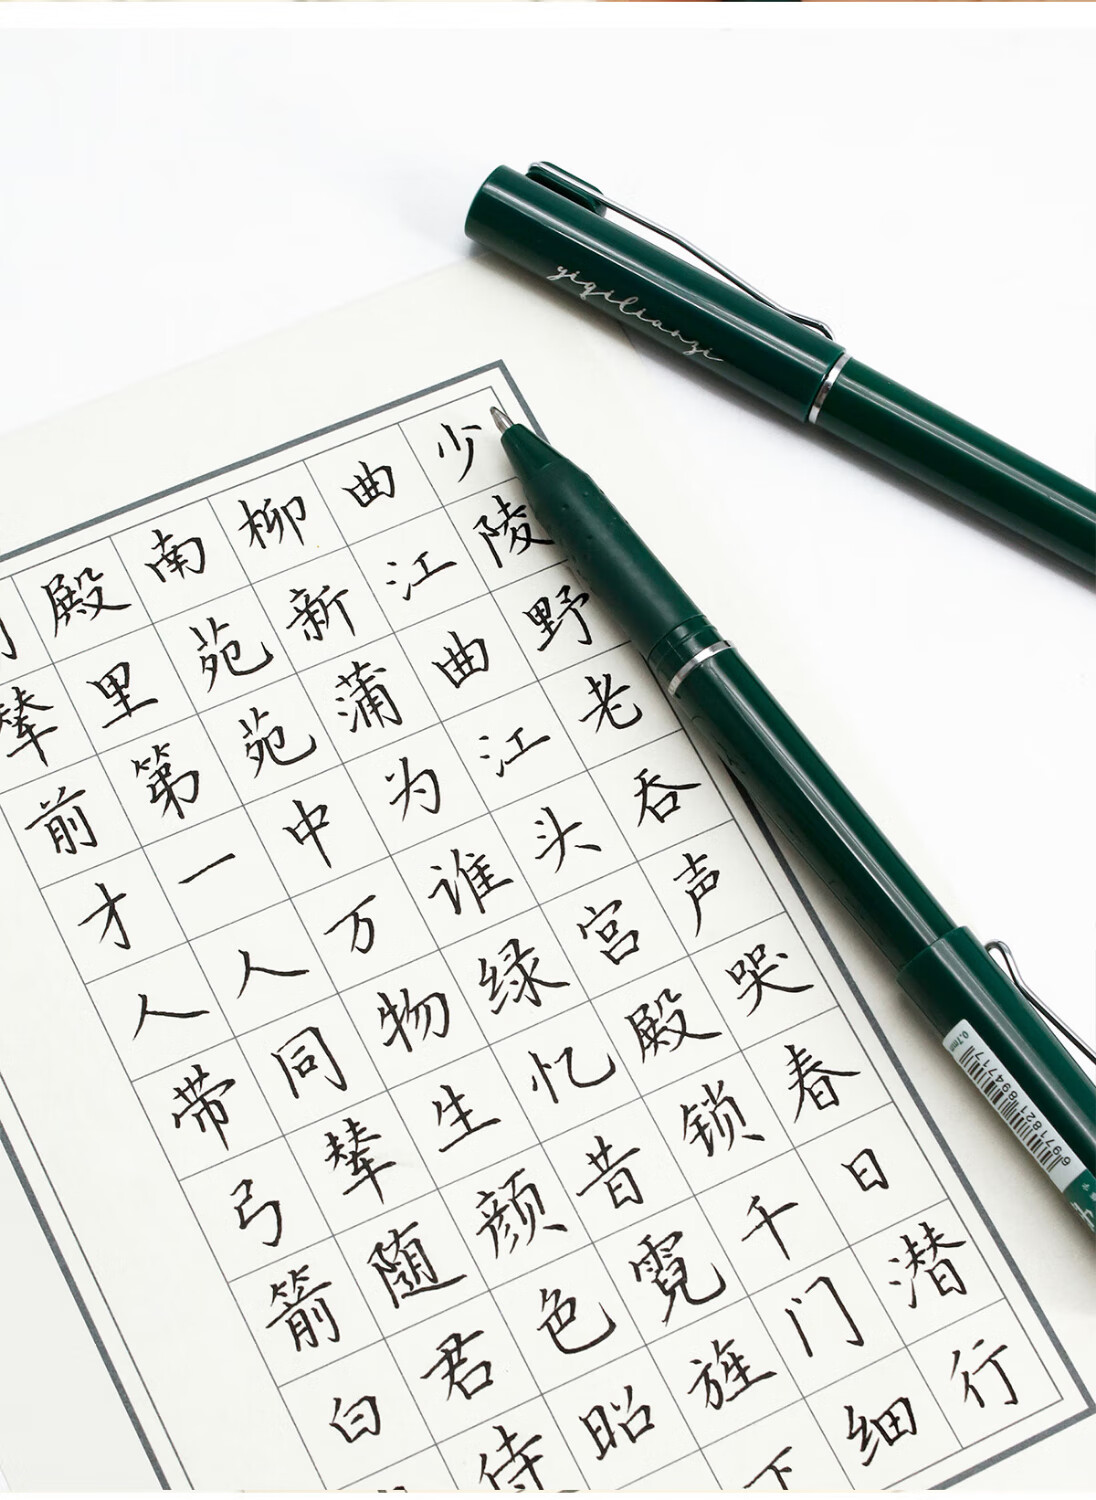 少陵野老吞声哭春日潜行
曲江曲江头宫殿锁千门细
柳新蒲为谁绿忆昔霓旌下
南苑苑中万物生颜色昭
殿里第一人同辇随君侍
辇前才人带弓箭白
yiqilianzi
0.7mm
6971821894717